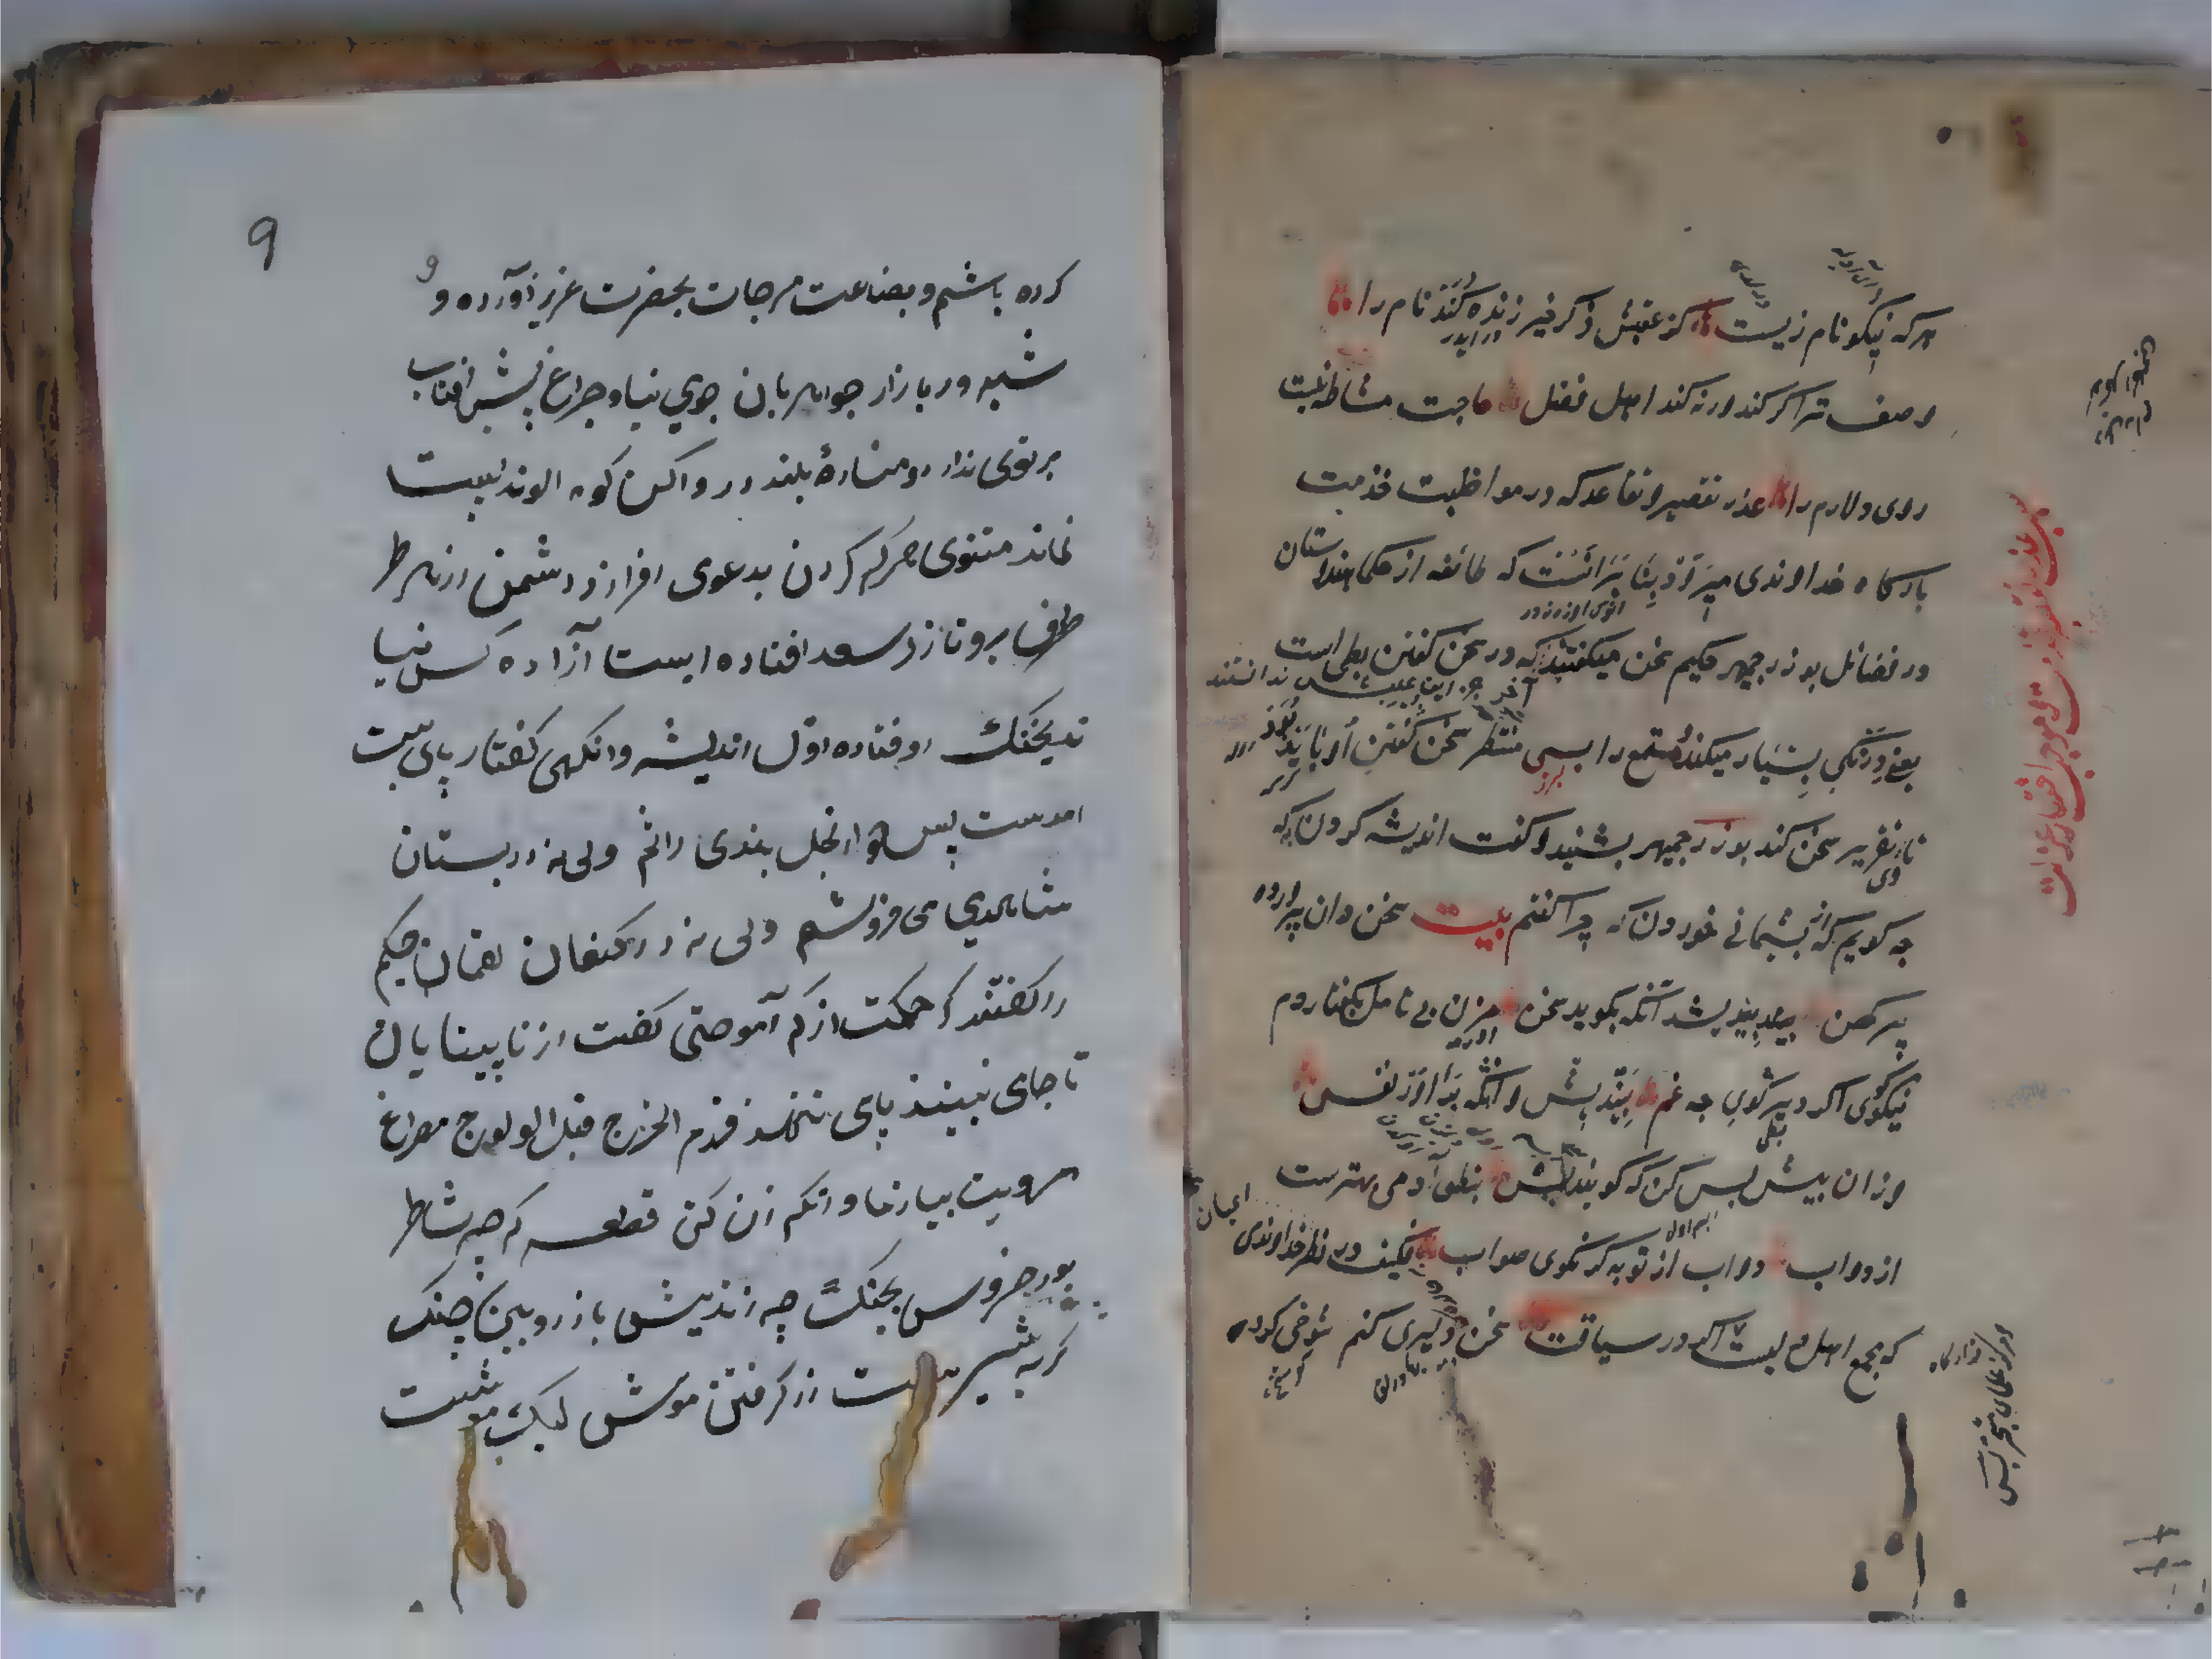 هرکه نیکو نام زیست کز عقبش ذکر خیر زنده کند نام را
وصف ترا کر کند ور نه کند اهل فضل حاجت مشاطه نیست
روی دلارام را عذر تقصیر و تقاعد که در مواظبت خدمت
بارکاه خداوندی میرود بنا برانست که طائفه از حکما هندوستان
در فضائل بوزرجمهر حکیم سخن میکفتند که در سخن کفتن بطی است
آخر جز این عیبش ندانستند
یعنی درنکی بسیار میکند مستمع را بسی منتظر سخن کفتن او باید بود
تا تقریر سخن کند بوزرجمهر بشنید و کفت اندیشه کردن که
چه کویم به که از پشیمانی خوردن که چرا کفتم بیت سخن دان پرورده
پیر کهن بیندیشد آنکه بکوید سخن مزن بی تامل بکفتار دم
نیکوی اکر دیر کوی چه غم بیندیش و آنکه براور نفس
وزان پیش بس کن که کویند بس بنطق آدمی بهترست
از دواب دواب از تو به کر نکوی صواب فکیف در نظر خداوندی
که مجمع اهل دلست اکر در سیاقت سخن دلیری کنم شوخی کرده
عذر تقصیر خدمت و موجب اختیار عزلت
و مرکز علمای متبحر
۹
کرده باشم و بضاعت مزجات بحضرت عزیز آورده و
شبه در بازار جوهریان جوی نیا و چراغ پیش افتاب
پرتوی ندارد و مناره بلند در دامن کوه الوند پست
نماند مثنوی هر که کردن بدعوی افرازد دشمن از هر طرف
طرف برو تازد سعد افتاده ایست آزاده کس نیا
ید بجنک اوفتاده اول اندیشه وانکهی کفتار پای بست
امدست پس دیوار نخل بندی دانم ولی نه در بستان
شاهدی می فروشم ولی نه در کنعان لقمان حکیم
را کفتند که حکمت از که آموختی کفت از نابینایان
تا جای نبینند پای ننهند قدم الخروج قبل الولوج مصراع
مردیت بیازما وانکه زن کن قطعه کرچه شاطر
بود خروس بجنک چه زند پیش باز رویین چنک
کربه شیر است در کرفتن موش لیک موشیست